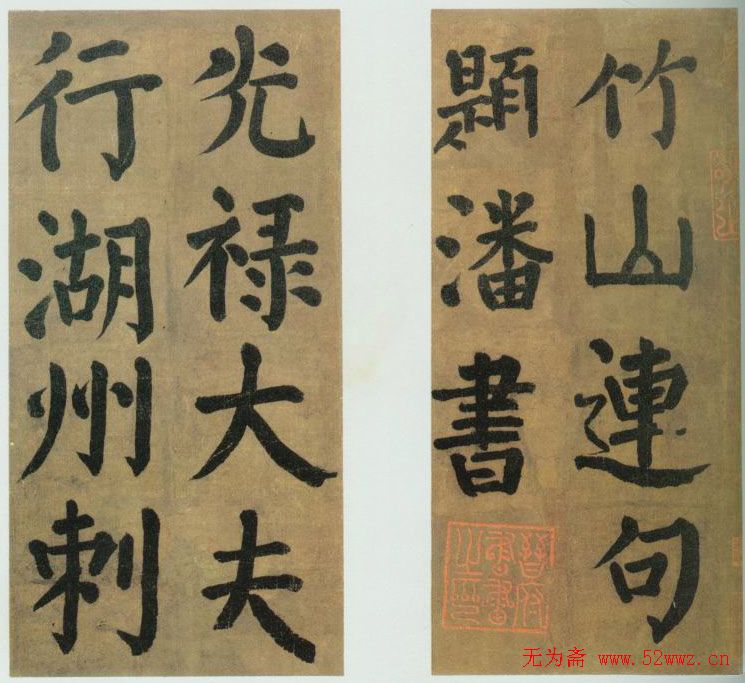 竹山連句
題潘書
光祿大夫
行湖州刺
晉府書畫之印
无为斋 www.52wwz.cn